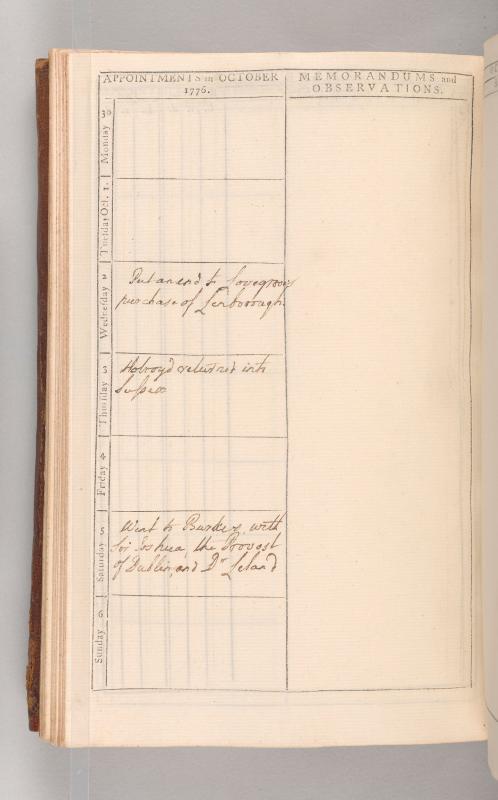 APPOINTMENTS in OCTOBER
1776.
MEMORANDUMS and
OBSERVATIONS.
Monday 30
Tuesday Oct. 1.
Wednesday 2
Put an end to Lovegroves
purchase of Lenborough.
Thursday 3
Holroyd returned into
Sussex
Friday 4
Saturday 5
Went to Burkes, with
Sir Joshua, the Provost
of Dublin, and Dr Leland
Sunday 6